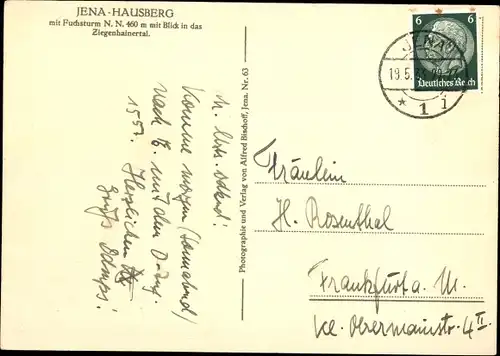 JENA-HAUSBERG
mit Fuchsturm N. N. 460 m mit Blick in das
Ziegenhainertal.
6 6
Deutsches Reich
JENA
19.5.
* 1 i
Photographie und Verlag von Alfred Bischoff, Jena. Nr. 63
Komme morgen (Sonnabend)
nach F. mit dem D-Zug
15⁵². Herzlichen
Gruß
Fräulein
H. Rosenthal
Frankfurt a. M.
Kl. Obermainstr. 4 II